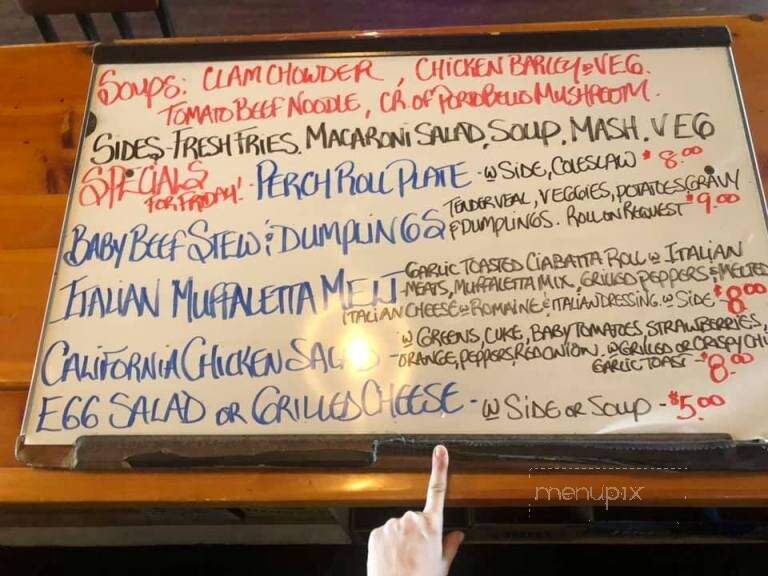 SOUPS: CLAM CHOWDER, CHICKEN BARLEY & VEG.
TOMATO BEEF NOODLE, CR. OF PORTOBELLO MUSHROOM.
SIDES - FRESH FRIES, MACARONI SALAD, SOUP, MASH, VEG
SPECIALS FOR FRIDAY! - PERCH ROLL PLATE - W SIDE, COLESLAW $8.00
BABY BEEF STEW & DUMPLINGS TENDER VEAL, VEGGIES, POTATOES, GRAVY
& DUMPLINGS. ROLL ON REQUEST $9.00
ITALIAN MUFFALETTA MELT - GARLIC TOASTED CIABATTA ROLL W ITALIAN
MEATS, MUFFALETTA MIX, GRILLED PEPPERS & MELTED
ITALIAN CHEESE W ROMAINE & ITALIAN DRESSING. W SIDE - $8.00
CALIFORNIA CHICKEN - W GREENS, CUKE, BABY TOMATOES, STRAWBERRIES,
ORANGE, PEPPERS, RED ONION. W GRILLED OR CRISPY CHI
GARLIC TOAST - $8.00
EGG SALAD OR GRILLED CHEESE - W SIDE OR SOUP - $5.00
menupix